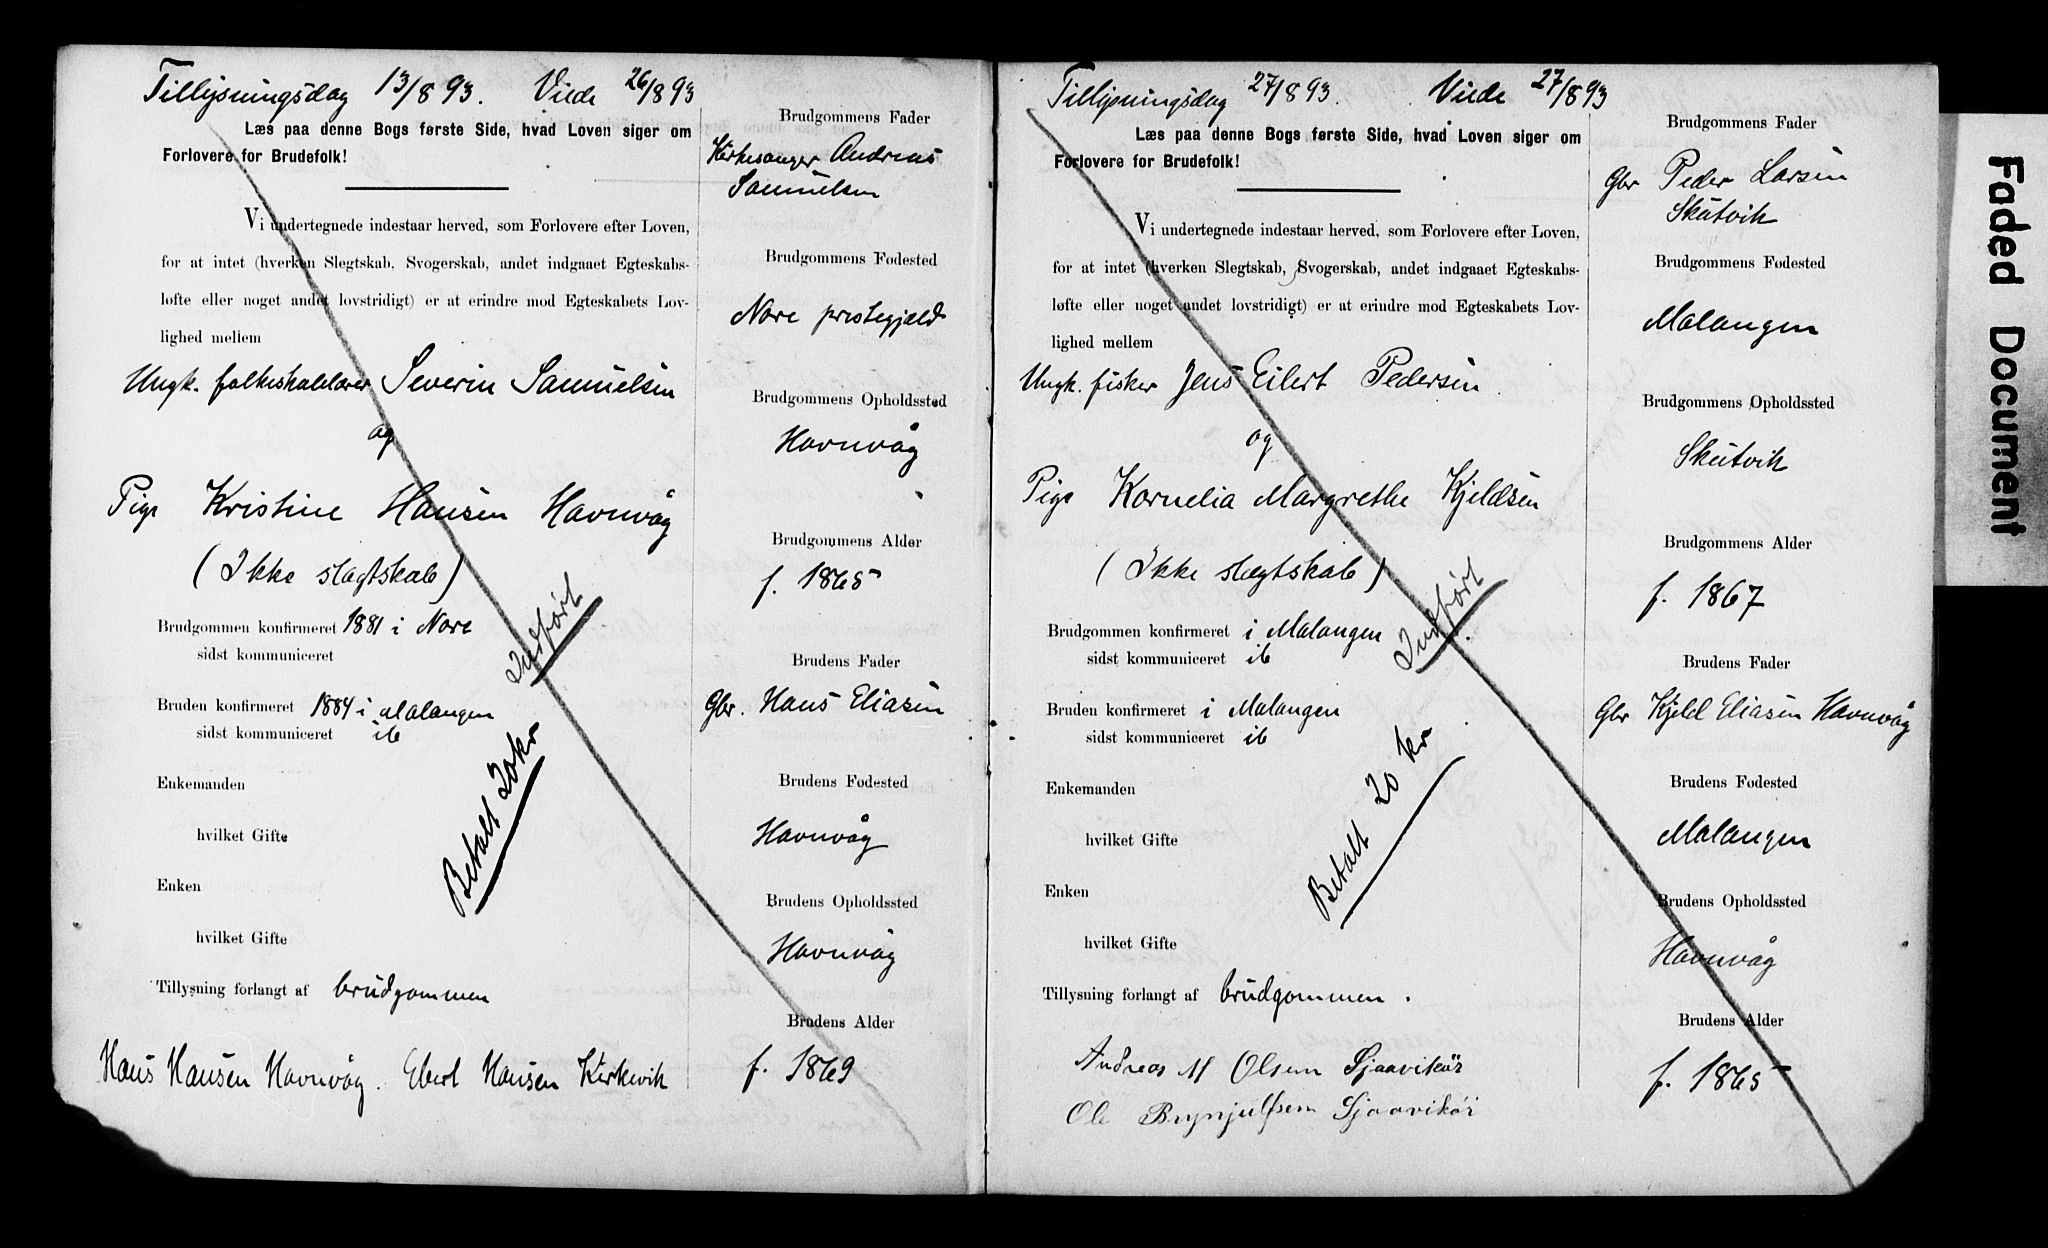 Tillysningsdag 13/8 93. Viede 26/8 93
Læs paa denne Bogs første Side, hvad Loven siger om
Forlovere for Brudefolk!
Vi undertegnede indestaar herved, som Forlovere efter Loven,
for at intet (hverken Slegtskab, Svogerskab, andet indgaaet Egteskabs-
løfte eller noget andet lovstridigt) er at erindre mod Egteskabets Lov-
lighed mellem
Ungk. folkeskolelærer Severin Samuelsen
og
Pige Kristine Hansen Havnvåg
(Ikke slægtskab)
Brudgommen konfirmeret 1881 i Nore
sidst kommuniceret
Bruden konfirmeret 1884 i Malangen
sidst kommuniceret ib
Enkemanden
hvilket Gifte
Enken
hvilket Gifte
Tillysning forlangt af brudgommen
Hans Hansen Havnvåg. Ebert Hansen Kirkevik
Indført
Betalt 20 kr
Brudgommens Fader
Kirkesanger Andreas
Samuelsen
Brudgommens Fødested
Nore prestegjæld
Brudgommens Opholdssted
Havnvåg
Brudgommens Alder
f. 1865
Brudens Fader
Gbr. Hans Eliasen
Brudens Fødested
Havnvåg
Brudens Opholdssted
Havnvåg
Brudens Alder
f. 1869
Tillysningsdag 27/8 93. Viede 27/8 93
Læs paa denne Bogs første Side, hvad Loven siger om
Forlovere for Brudefolk!
Vi undertegnede indestaar herved, som Forlovere efter Loven,
for at intet (hverken Slegtskab, Svogerskab, andet indgaaet Egteskabs-
løfte eller noget andet lovstridigt) er at erindre mod Egteskabets Lov-
lighed mellem
Ungk. fisker Jens Eilert Pedersen
og
Pige Kornelia Margrethe Kjeldsen
(Ikke slægtskab)
Brudgommen konfirmeret i Malangen
sidst kommuniceret ib
Bruden konfirmeret i Malangen
sidst kommuniceret ib
Enkemanden
hvilket Gifte
Enken
hvilket Gifte
Tillysning forlangt af brudgommen.
Andreas M Olsen Sjaavikør
Ole Brynjulfsen Sjaavikør
Indført
Betalt 20 kr
Brudgommens Fader
Gbr Peder Larsen
Skutvik
Brudgommens Fødested
Malangen
Brudgommens Opholdssted
Skutvik
Brudgommens Alder
f. 1867
Brudens Fader
Gbr Kjeld Eliasen Havnvåg
Brudens Fødested
Malangen
Brudens Opholdssted
Havnvåg
Brudens Alder
f. 1865
Faded Document